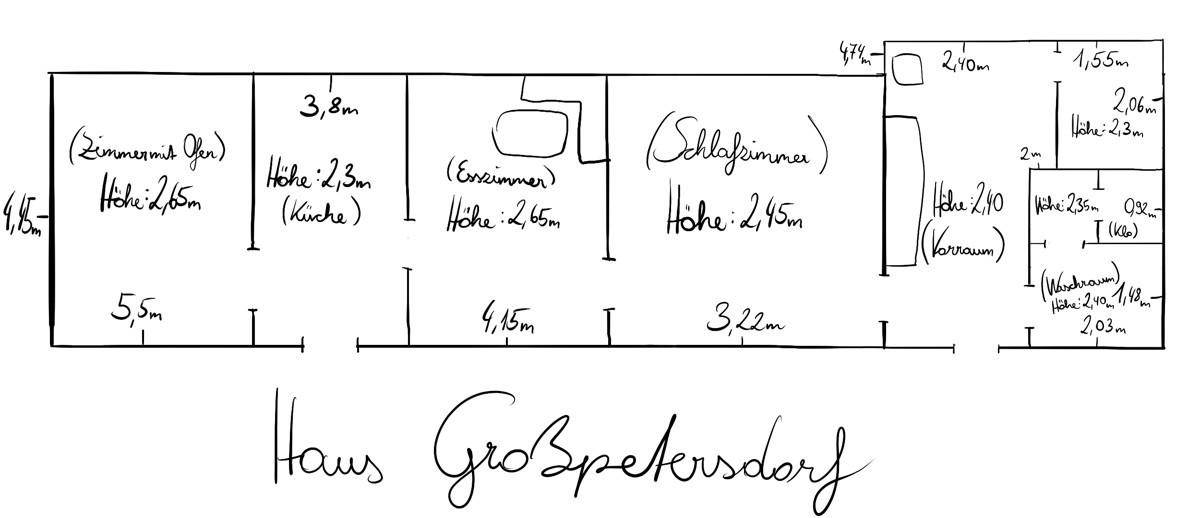 4,74m
2,40m
1,55m
3,8m
2,06m
Höhe: 2,3m
(Zimmer mit Ofen)
Höhe: 2,65m
Höhe: 2,3m
(Küche)
(Esszimmer)
Höhe: 2,65m
(Schlafzimmer)
Höhe: 2,45m
2m
Höhe: 2,40
(Vorraum)
Höhe: 2,35m
0,92m
(Klo)
4,45m
(Waschraum)
Höhe: 2,40m
1,48m
2,03m
5,5m
4,15m
3,22m
Haus Großpetersdorf